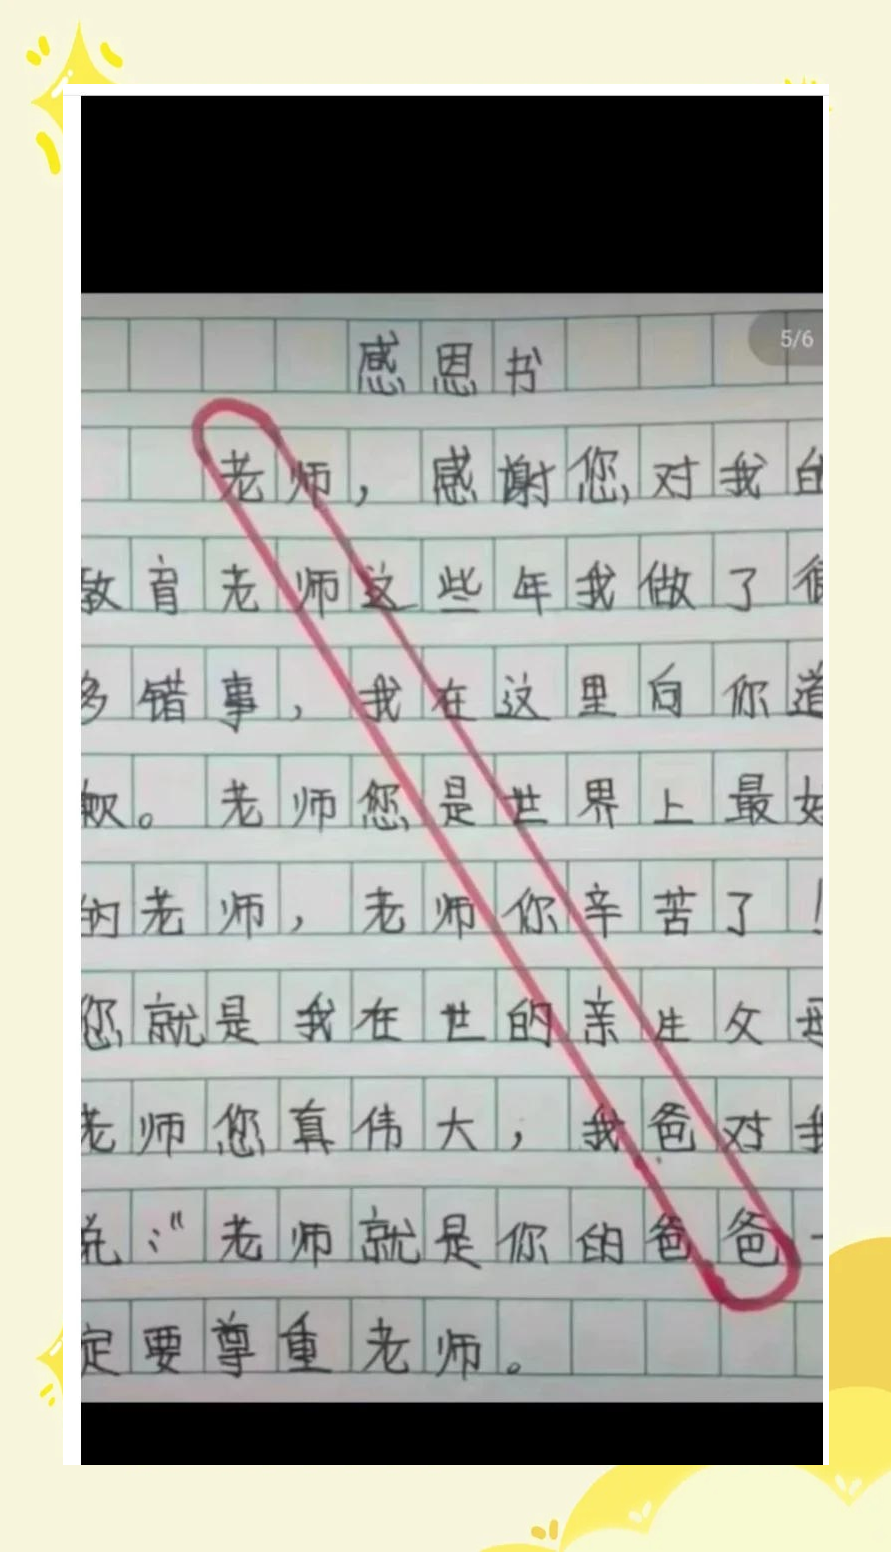 5/6
感恩书
老师，感谢您对我的
教育老师这些年我做了很
多错事，我在这里向你道
歉。老师您是世界上最好
的老师，老师你辛苦了！
您就是我在世的亲生父母
老师您真伟大，我爸对我
说：“老师就是你的爸爸一
定要尊重老师。